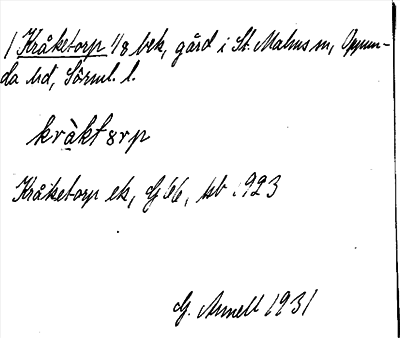 1 Kråketorp 1/8 bek, gård i St. Malms sn, Oppun-
da hd, Sörml. l.
kràktɜrp
Kråketorp ek, G 66, ub 1923
G. Arnell 1931